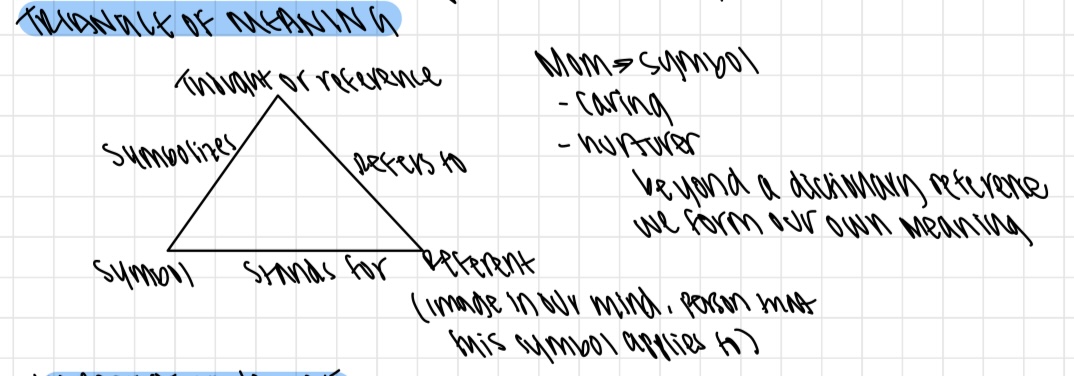 TRIANGLE OF MEANING
Thought or reference
Symbolizes
Refers to
Symbol
Stands for
Referent
(image in our mind, person that
this symbol applies to)
Mom → symbol
- caring
- nurturer
beyond a dictionary reference
we form our own meaning